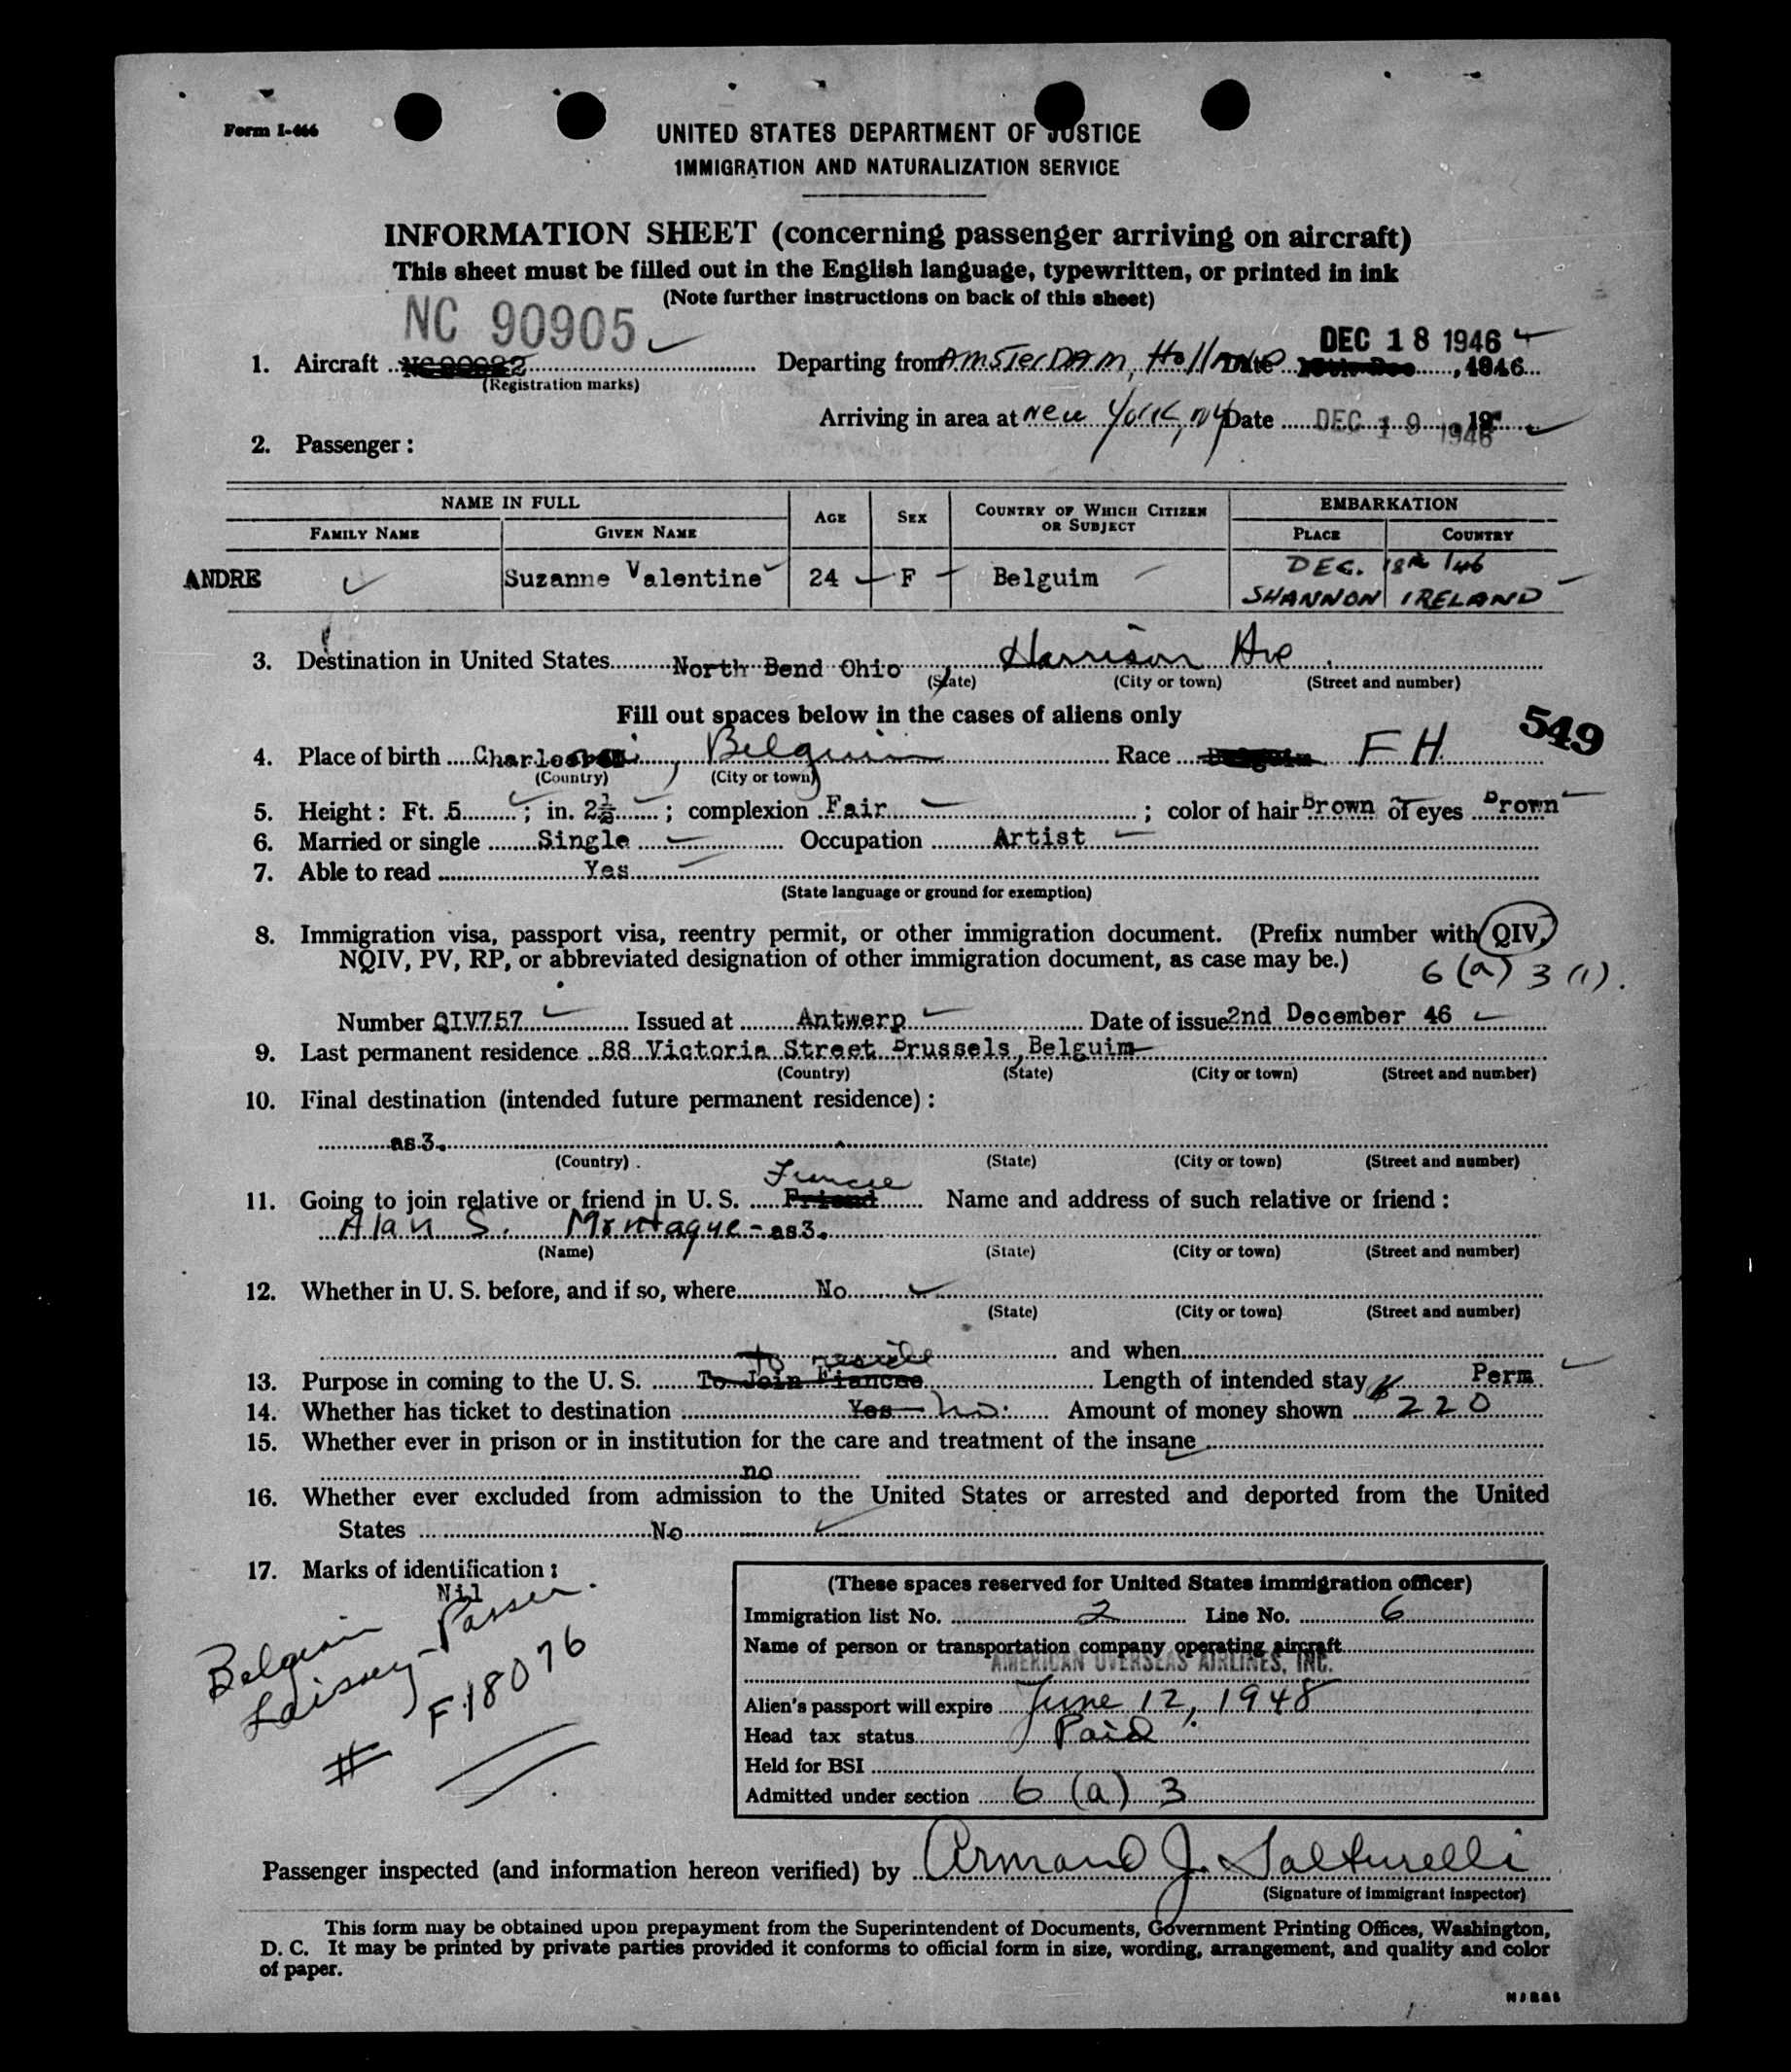 Form I-466
UNITED STATES DEPARTMENT OF JUSTICE
IMMIGRATION AND NATURALIZATION SERVICE
INFORMATION SHEET (concerning passenger arriving on aircraft)
This sheet must be filled out in the English language, typewritten, or printed in ink
(Note further instructions on back of this sheet)
NC 90905
DEC 18 1946
1. Aircraft Departing from AMSTERDAM, HOLLAND Date , 1946
(Registration marks)
Arriving in area at New York, NY Date DEC 19 1946 , 19
2. Passenger :
NAME IN FULL AGE SEX COUNTRY OF WHICH CITIZEN OR SUBJECT EMBARKATION
FAMILY NAME GIVEN NAME PLACE COUNTRY
DEC. 18th /46
ANDRE Suzanne Valentine 24 F Belguim SHANNON IRELAND
3. Destination in United States North Bend Ohio, Harrison Ave.
(State) (City or town) (Street and number)
Fill out spaces below in the cases of aliens only
549
4. Place of birth , Belguim Race F H
(Country) (City or town)
5. Height : Ft. 5 ; in. 2½ ; complexion Fair ; color of hair Brown of eyes Brown
6. Married or single Single Occupation Artist
7. Able to read Yes
(State language or ground for exemption)
8. Immigration visa, passport visa, reentry permit, or other immigration document. (Prefix number with QIV,
NQIV, PV, RP, or abbreviated designation of other immigration document, as case may be.)
6 (a) 3 (1).
Number QIV757 Issued at Antwerp Date of issue 2nd December 46
9. Last permanent residence 88 Victoria Street Brussels, Belguim
(Country) (State) (City or town) (Street and number)
10. Final destination (intended future permanent residence) :
as 3.
(Country) (State) (City or town) (Street and number)
Fiancee
11. Going to join relative or friend in U. S. Friend Name and address of such relative or friend :
Alan S. Montague - as 3.
(Name) (State) (City or town) (Street and number)
12. Whether in U. S. before, and if so, where No
(State) (City or town) (Street and number)
and when
to reside
13. Purpose in coming to the U. S. To Join Fiancee Length of intended stay Perm
14. Whether has ticket to destination Yes no. Amount of money shown 220
15. Whether ever in prison or in institution for the care and treatment of the insane
no
16. Whether ever excluded from admission to the United States or arrested and deported from the United
States No
17. Marks of identification :
Nil
Belgian
Laissey-Passer.
# F18076
(These spaces reserved for United States immigration officer)
Immigration list No. 2 Line No. 6
Name of person or transportation company operating aircraft
AMERICAN OVERSEAS AIRLINES, INC.
Alien's passport will expire June 12, 1948
Head tax status Paid
Held for BSI
Admitted under section 6 (a) 3
Passenger inspected (and information hereon verified) by Armand J. Salturelli
(Signature of immigrant inspector)
This form may be obtained upon prepayment from the Superintendent of Documents, Government Printing Offices, Washington,
D. C. It may be printed by private parties provided it conforms to official form in size, wording, arrangement, and quality and color
of paper.